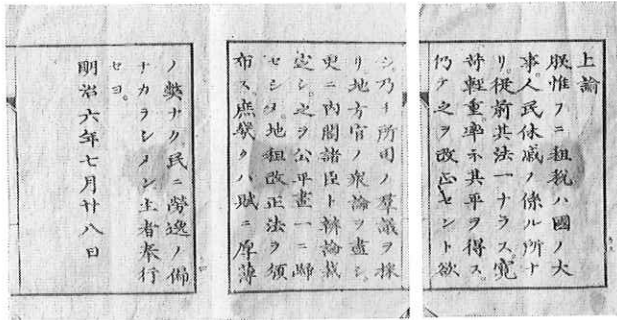 上諭
朕惟フニ租税ハ國ノ大
事人民休戚ノ係ル所ナ
リ從前其法一ナラス寛
苛輕重率子其平ヲ得ス
仍テ之ヲ改正セント欲
シ乃チ所司ノ羣議ヲ採
リ地方官ノ衆論ヲ盡シ
更ニ内閣諸臣ト辨論裁
定シ之ヲ公平畫一ニ歸
セシメ地租改正法ヲ頒
布ス庶幾クハ賦ニ厚薄
ノ弊ナク民ニ勞逸ノ偏
ナカラシメン主者奉行
セヨ
明治六年七月廿八日